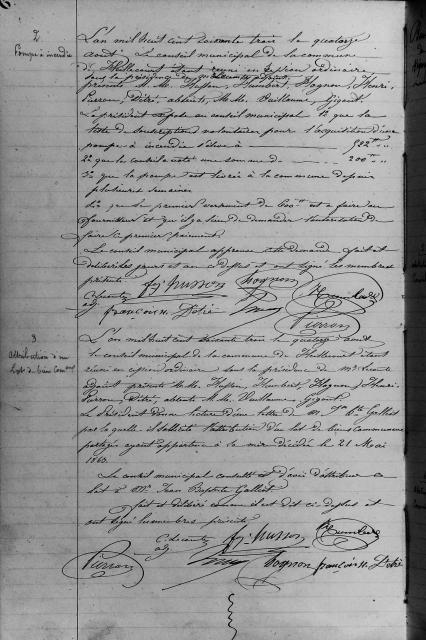 2
Pompe à incendie
L'an mil huit cent soixante trois le quatorze
août Le conseil municipal de la commune
réuni en session ordinaire
sous la présidence
présents M.M. Husson, Humbert, Hognon, Henri,
Pierron, Détré, absents, M.M. Vuillaume, Gigant.
Le président expose au conseil municipal 1° que la
liste de souscription volontaire pour l'acquisition d'une
pompe à incendie s'élève à
2° que le conseil a voté une somme de 200
3° que la pompe est livrée à la commune depuis
plusieurs semaines
premier versement de 600 est à faire au
fournisseur et qu'il y a lieu de demander l'autorisation de
faire ce premier paiement.
Le conseil municipal approuve cette demande fait et
délibéré les jours et an ci-dessus et ont signé les membres
présents
Husson Hognon Humbert
françois H. Détré Pierron
3
Attribution d'un
lot de biens comaux
L'an mil huit cent soixante trois le quatorze août
le conseil municipal de la commune de étant
réuni en session ordinaire sous la présidence de Mr
présents M.M. Husson, Humbert, Hognon, Henri,
Pierron, Détré, absents M.M. Vuillaume, Gigant.
Le Président donne lecture d'une lettre de M. Jn Bte Galliot
par laquelle il sollicite l'attribution d'un lot de biens communaux
partagés ayant appartenu à sa mère décédée le 21 Mai
1863.
Le conseil municipal consulté est d'avis d'attribuer ce
lot à Mr Jean Baptiste Galliot
fait et délibéré comme il est dit ci-dessus et
ont signé les membres présents
Husson Humbert
Pierron Hognon françois H. Détré